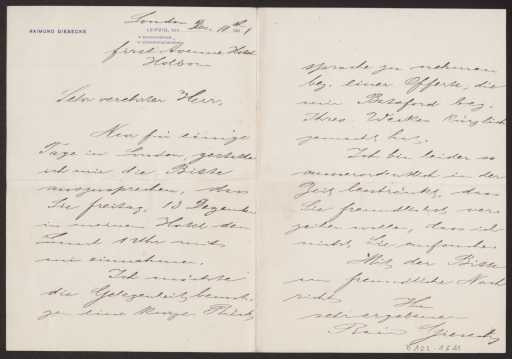 RAIMOND DIESECKE
LEIPZIG, DEN
London Dec. 10th
First Avenue Hotel
Holborn
Sehr verehrter Herr,
Nur für einige
Tage in London, gestatte
ich mir die Bitte
auszusprechen, dass
Sie Freitag, 13 Dezember
in meinem Hotel den
Lunch 1 Uhr mit
mir einnehmen.
Ich möchte
die Gelegenheit benut-
zen eine kurze Rück-
sprache zu nehmen
bez. einer Offerte, die
mir Botsford bez.
Ihres Werkes kürzlich
gemacht hat.
Ich bin leider so
ausserordentlich in der
Zeit beschränkt, dass
Sie freundlichst ver-
zeihen wollen, dass ich
nicht Sie aufsuche.
Mit der Bitte
um freundliche Nach
richt Ihr
sehr ergebener